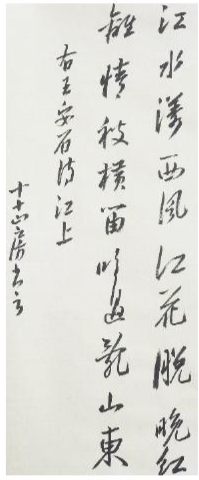 江水漾西風江花脫晚紅
離情被橫笛吹過亂山東
右王安石詩江上
山房